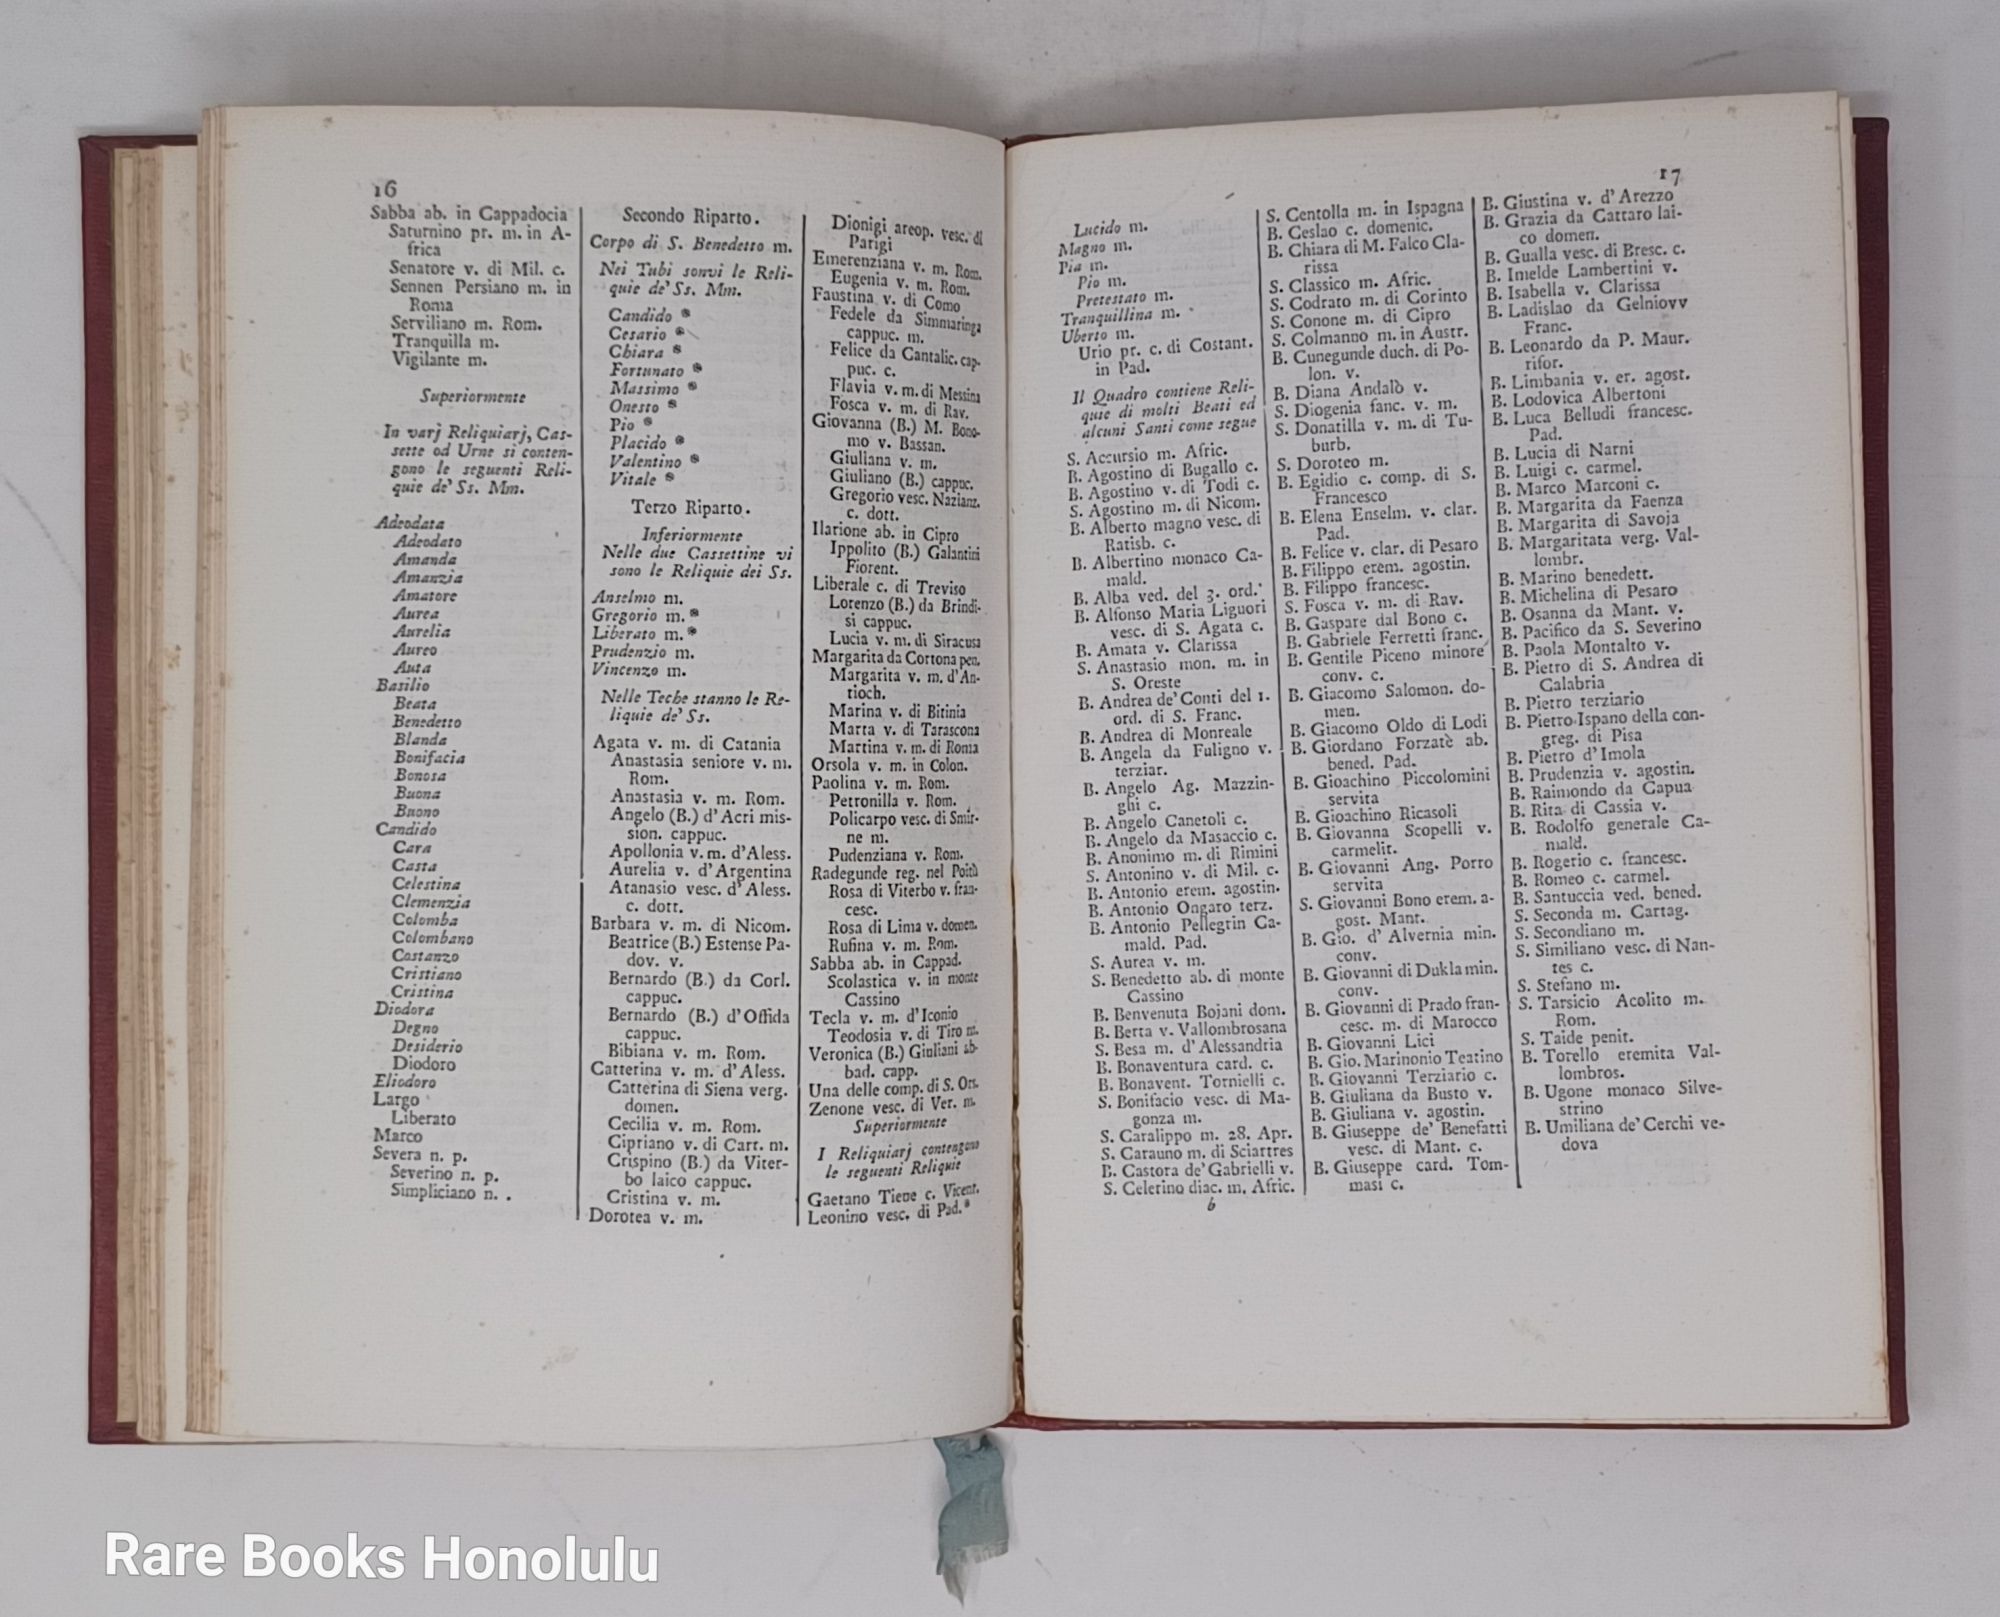 16
Sabba ab. in Cappadocia
Saturnino pr. m. in A-
frica
Senatore v. di Mil. c.
Sennen Persiano m. in
Roma
Serviliano m. Rom.
Tranquilla m.
Vigilante m.
Superiormente
In varj Reliquiarj, Cas-
sette od Urne si conten-
gono le seguenti Reli-
quie de' Ss. Mm.
Adeodata
Adeodato
Amanda
Amanzia
Amatore
Aurea
Aurelia
Aureo
Auta
Basilio
Beata
Benedetto
Blanda
Bonifacia
Bonosa
Buona
Buono
Candido
Cara
Casta
Celestina
Clemenzia
Colomba
Colombano
Costanzo
Cristiano
Cristina
Diodora
Degno
Desiderio
Diodoro
Eliodoro
Largo
Liberato
Marco
Severa n. p.
Severino n. p.
Simpliciano n. .
Secondo Riparto.
Corpo di S. Benedetto m.
Nei Tubi sonvi le Reli-
quie de' Ss. Mm.
Candido *
Cesario *
Chiara *
Fortunato *
Massimo *
Onesto *
Pio *
Placido *
Valentino *
Vitale *
Terzo Riparto.
Inferiormente
Nelle due Cassettine vi
sono le Reliquie dei Ss.
Anselmo m.
Gregorio m. *
Liberato m. *
Prudenzio m.
Vincenzo m.
Nelle Teche stanno le Re-
liquie de' Ss.
Agata v. m. di Catania
Anastasia seniore v. m.
Rom.
Anastasia v. m. Rom.
Angelo (B.) d'Acri mis-
sion. cappuc.
Apollonia v. m. d'Aless.
Aurelia v. d'Argentina
Atanasio vesc. d'Aless.
c. dott.
Barbara v. m. di Nicom.
Beatrice (B.) Estense Pa-
dov. v.
Bernardo (B.) da Corl.
cappuc.
Bernardo (B.) d'Offida
cappuc.
Bibiana v. m. Rom.
Catterina v. m. d'Aless.
Catterina di Siena verg.
domen.
Cecilia v. m. Rom.
Cipriano v. di Cart. m.
Crispino (B.) da Viter-
bo laico cappuc.
Cristina v. m.
Dorotea v. m.
Dionigi areop. vesc. di
Parigi
Emerenziana v. m. Rom.
Eugenia v. m. Rom.
Faustina v. di Como
Fedele da Simmaringa
cappuc. m.
Felice da Cantalic. cap-
puc. c.
Flavia v. m. di Messina
Fosca v. m. di Rav.
Giovanna (B.) M. Bono-
mo v. Bassan.
Giuliana v. m.
Giuliano (B.) cappuc.
Gregorio vesc. Nazianz.
c. dott.
Ilarione ab. in Cipro
Ippolito (B.) Galantini
Fiorent.
Liberale c. di Treviso
Lorenzo (B.) da Brindi-
si cappuc.
Lucia v. m. di Siracusa
Margarita da Cortona pen.
Margarita v. m. d'An-
tioch.
Marina v. di Bitinia
Marta v. di Tarascona
Martina v. m. di Roma
Orsola v. m. in Colon.
Paolina v. m. Rom.
Petronilla v. Rom.
Policarpo vesc. di Smir-
ne m.
Pudenziana v. Rom.
Radegunde reg. nel Poitù
Rosa di Viterbo v. fran-
cesc.
Rosa di Lima v. domen.
Rufina v. m. Rom.
Sabba ab. in Cappad.
Scolastica v. in monte
Cassino
Tecla v. m. d'Iconio
Teodosia v. di Tiro m.
Veronica (B.) Giuliani ab-
bad. capp.
Una delle comp. di S. Ors.
Zenone vesc. di Ver. m.
Superiormente
I Reliquiarj contengono
le seguenti Reliquie
Gaetano Tiene c. Vicent.
Leonino vesc. di Pad. *
17
Lucido m.
Magno m.
Pia m.
Pio m.
Pretestato m.
Tranquillina m.
Uberto m.
Urio pr. c. di Costant.
in Pad.
Il Quadro contiene Reli-
quie di molti Beati ed
alcuni Santi come segue
S. Accursio m. Afric.
B. Agostino di Bugallo c.
B. Agostino v. di Todi c.
S. Agostino m. di Nicom.
B. Alberto magno vesc. di
Ratisb. c.
B. Albertino monaco Ca-
mald.
B. Alba ved. del 3. ord.
B. Alfonso Maria Liguori
vesc. di S. Agata c.
B. Amata v. Clarissa
S. Anastasio mon. m. in
S. Oreste
B. Andrea de' Conti del 1.
ord. di S. Franc.
B. Andrea di Monreale
B. Angela da Fuligno v.
terziar.
B. Angelo Ag. Mazzin-
ghi c.
B. Angelo Canetoli c.
B. Angelo da Masaccio c.
B. Anonimo m. di Rimini
S. Antonino v. di Mil. c.
B. Antonio erem. agostin.
B. Antonio Ongaro terz.
B. Antonio Pellegrin Ca-
mald. Pad.
S. Aurea v. m.
S. Benedetto ab. di monte
Cassino
B. Benvenuta Bojani dom.
B. Berta v. Vallombrosana
S. Besa m. d'Alessandria
B. Bonaventura card. c.
B. Bonavent. Tornielli c.
S. Bonifacio vesc. di Ma-
gonza m.
S. Caralippo m. 28. Apr.
S. Carauno m. di Sciartres
B. Castora de' Gabrielli v.
S. Celerino diac. m. Afric.
b
S. Centolla m. in Ispagna
B. Ceslao c. domenic.
B. Chiara di M. Falco Cla-
rissa
S. Classico m. Afric.
S. Codrato m. di Corinto
S. Conone m. di Cipro
S. Colmanno m. in Austr.
B. Cunegunde duch. di Po-
lon. v.
B. Diana Andalò v.
S. Diogenia fanc. v. m.
S. Donatilla v. m. di Tu-
burb.
S. Doroteo m.
B. Egidio c. comp. di S.
Francesco
B. Elena Enselm. v. clar.
Pad.
B. Felice v. clar. di Pesaro
B. Filippo erem. agostin.
B. Filippo francesc.
S. Fosca v. m. di Rav.
B. Gaspare dal Bono c.
B. Gabriele Ferretti franc.
B. Gentile Piceno minore
conv. c.
B. Giacomo Salomon. do-
men.
B. Giacomo Oldo di Lodi
B. Giordano Forzatè ab.
bened. Pad.
B. Gioachino Piccolomini
servita
B. Gioachino Ricasoli
B. Giovanna Scopelli v.
carmelit.
B. Giovanni Ang. Porro
servita
S. Giovanni Bono erem. a-
gost. Mant.
B. Gio. d'Alvernia min.
conv.
B. Giovanni di Dukla min.
conv.
B. Giovanni di Prado fran-
cesc. m. di Marocco
B. Giovanni Lici
B. Gio. Marinonio Teatino
B. Giovanni Terziario c.
B. Giuliana da Busto v.
B. Giuliana v. agostin.
B. Giuseppe de' Benefatti
vesc. di Mant. c.
B. Giuseppe card. Tom-
masi c.
B. Giustina v. d'Arezzo
B. Grazia da Cattaro lai-
co domen.
B. Gualla vesc. di Bresc. c.
B. Imelde Lambertini v.
B. Isabella v. Clarissa
B. Ladislao da Gelniovv
Franc.
B. Leonardo da P. Maur.
rifor.
B. Limbania v. er. agost.
B. Lodovica Albertoni
B. Luca Belludi francesc.
Pad.
B. Lucia di Narni
B. Luigi c. carmel.
B. Marco Marconi c.
B. Margarita da Faenza
B. Margarita di Savoja
B. Margaritata verg. Val-
lombr.
B. Marino benedett.
B. Michelina di Pesaro
B. Osanna da Mant. v.
B. Pacifico da S. Severino
B. Paola Montalto v.
B. Pietro di S. Andrea di
Calabria
B. Pietro terziario
B. Pietro Ispano della con-
greg. di Pisa
B. Pietro d'Imola
B. Prudenzia v. agostin.
B. Raimondo da Capua
B. Rita di Cassia v.
B. Rodolfo generale Ca-
mald.
B. Rogerio c. francesc.
B. Romeo c. carmel.
B. Santuccia ved. bened.
S. Seconda m. Cartag.
S. Secondiano m.
S. Similiano vesc. di Nan-
tes c.
S. Stefano m.
S. Tarsicio Acolito m.
Rom.
S. Taide penit.
B. Torello eremita Val-
lombros.
B. Ugone monaco Silve-
strino
B. Umiliana de' Cerchi ve-
dova
Rare Books Honolulu